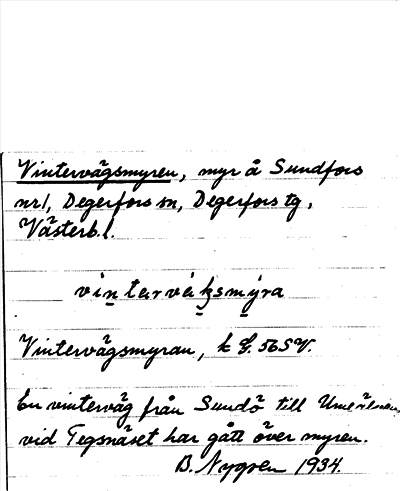 Vintervägsmyren, myr å Sundfors
nr 1, Degerfors sn, Degerfors tg,
Västerb. l.
vintervägsmýra
Vintervägsmyran, k G. 56 SV.
En vinterväg från Sundö till Umeälven,
vid Tegsnäset har gått över myren.
B. Nygren 1934.